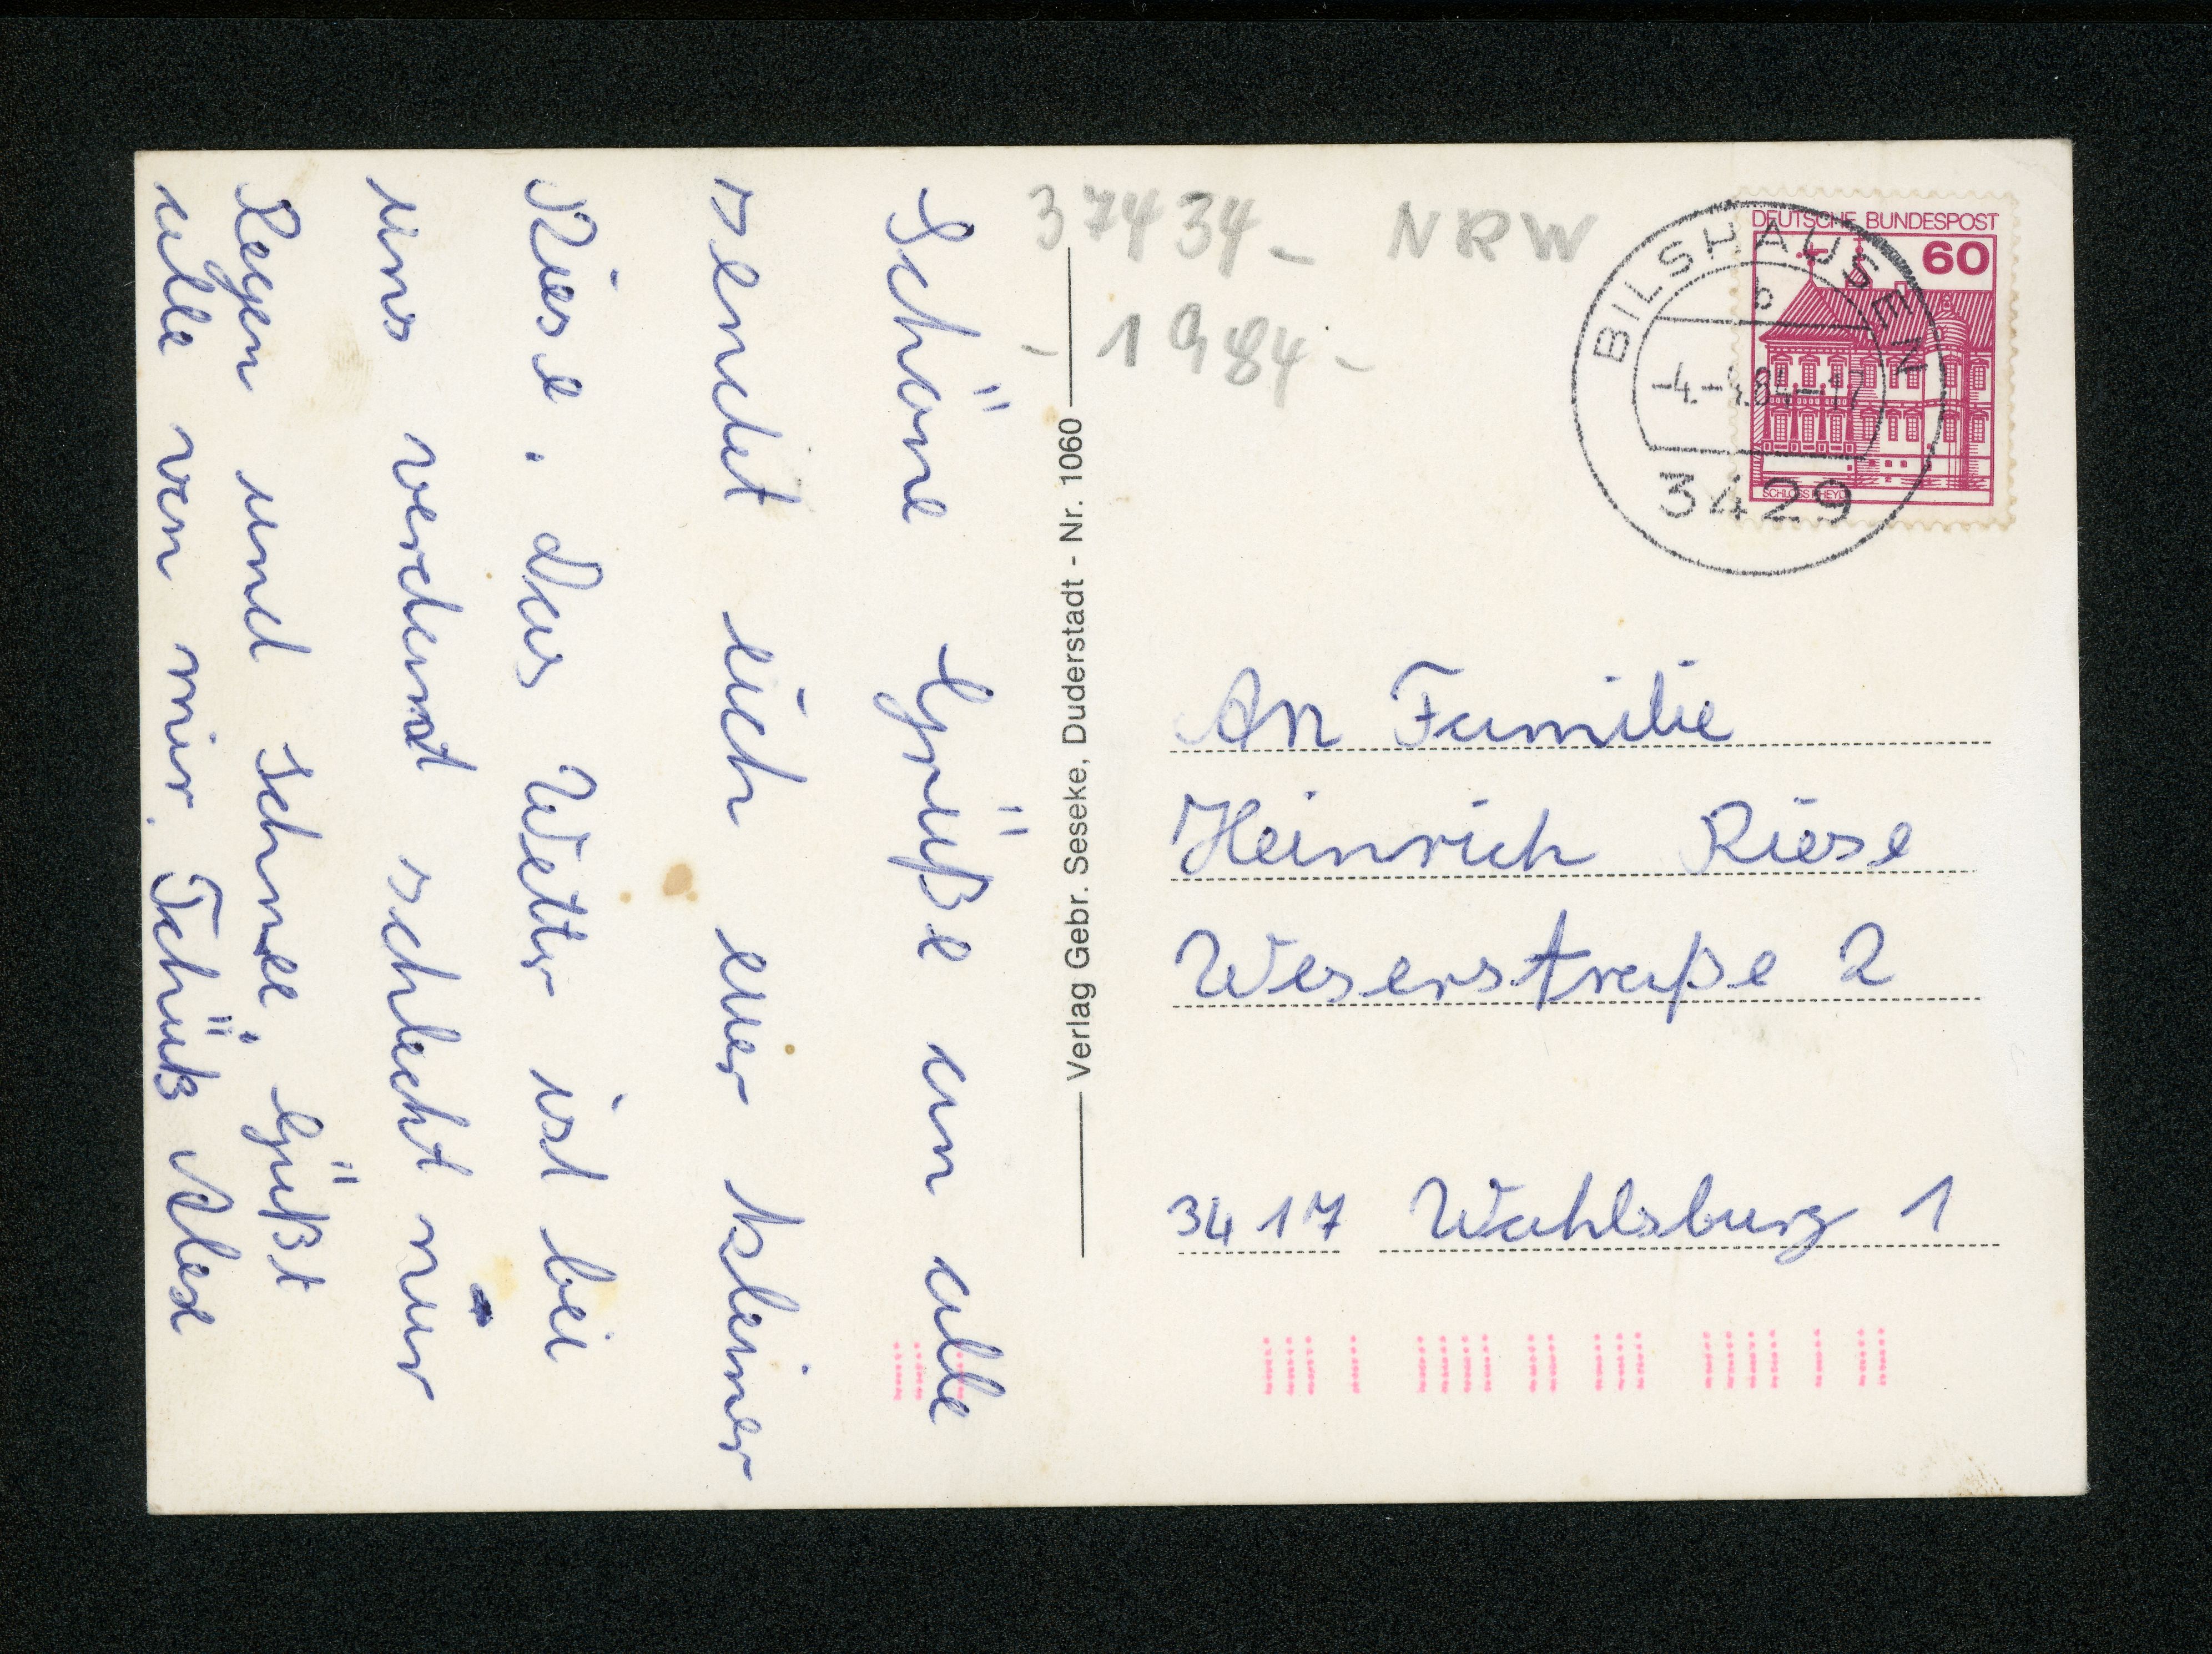 37434- NRW
-1984-
DEUTSCHE BUNDESPOST
60
SCHLOSS RHEYDT
BILSHAUSEN
b
-4.-4.84-17
3429
Schöne Grüße an alle
sendet euch euer kleiner
Riese. Das Wetter ist bei
uns verdamt schlecht nur
Regen und Schnee. Güßt
alle von mir. Tchüß Alex
Verlag Gebr. Seseke, Duderstadt - Nr. 1060
An Familie
Heinrich Riese
Weserstraße 2
3417 Wahlsburg 1